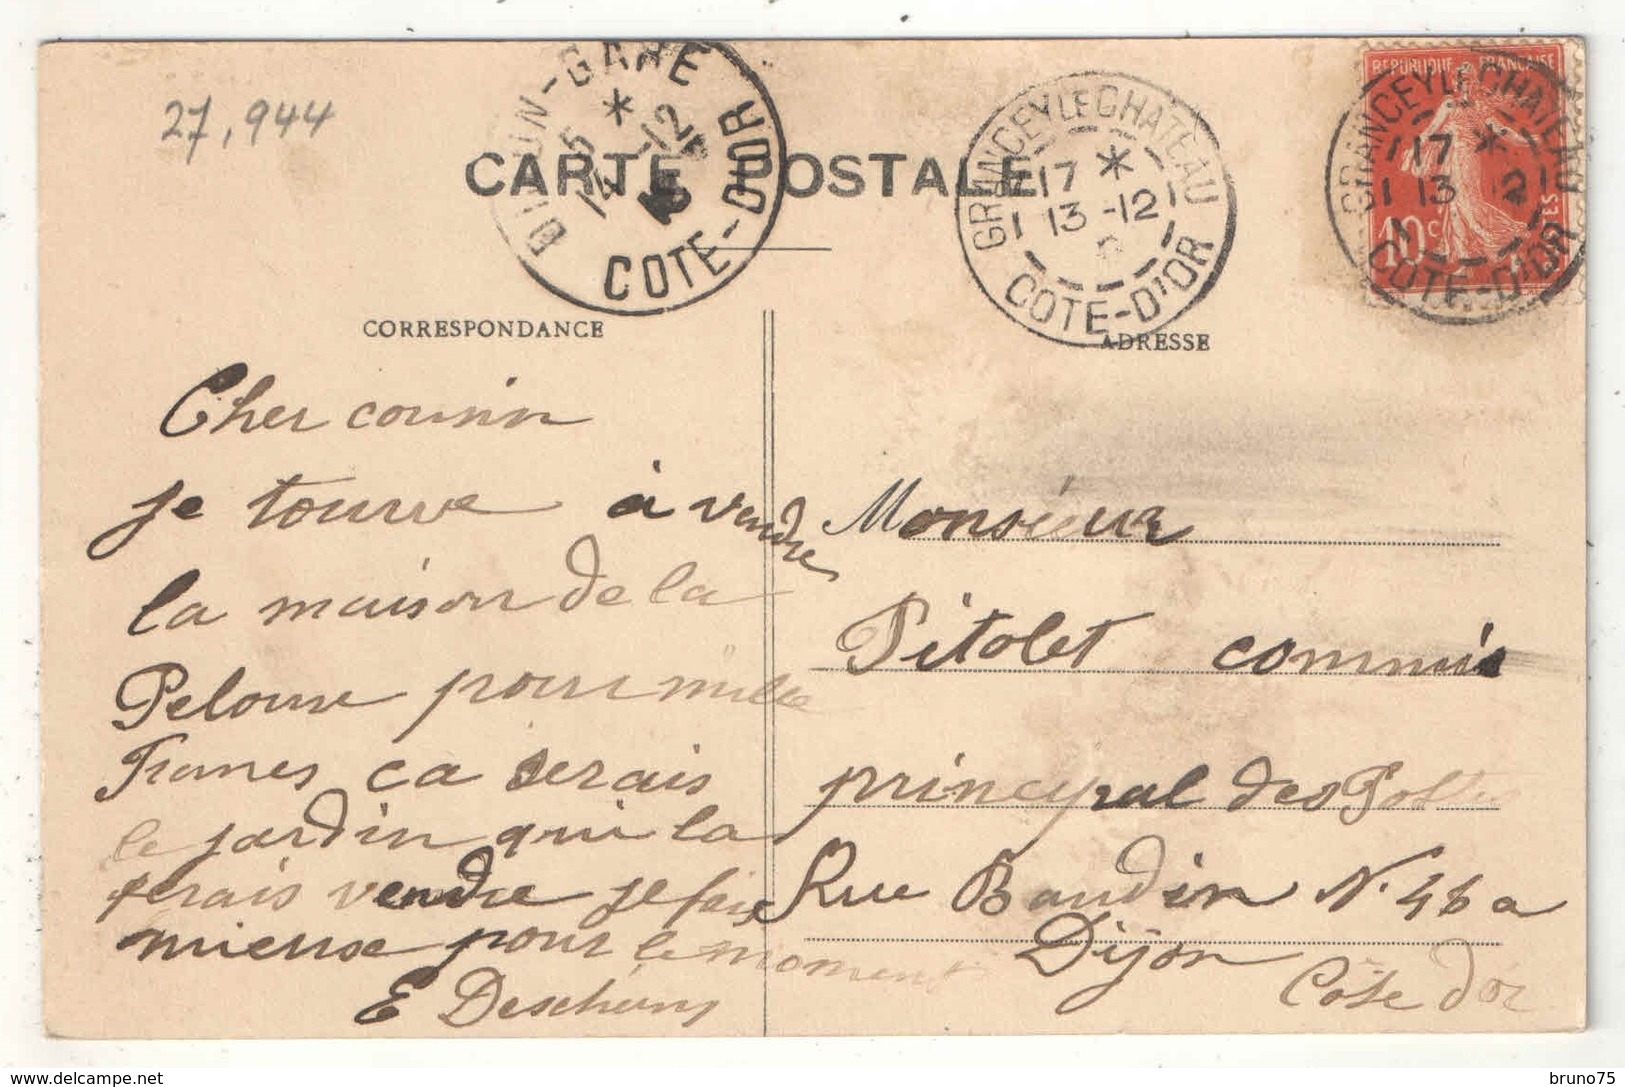 27,944
DIJON-GARE
5 *
14 -12
COTE-D'OR
CARTE POSTALE
GRANCEY LE CHATEAU
17 *
13 -12
COTE-D'OR
REPUBLIQUE FRANÇAISE
10c POSTES
GRANCEY LE CHATEAU
17 *
13 12
COTE-D'OR
CORRESPONDANCE
Cher cousin
je tourve à vendre
la maison de la
Pelouse pour mille
Francs ca serais
le jardin qui la
ferais vendre je fais
mieux pour le moment
E Deschamps
ADRESSE
Monsieur
Pitolet commis
principal des Postes
Rue Baudin N. 46 a
Dijon
Côte d'or
delcampe.net
bruno75